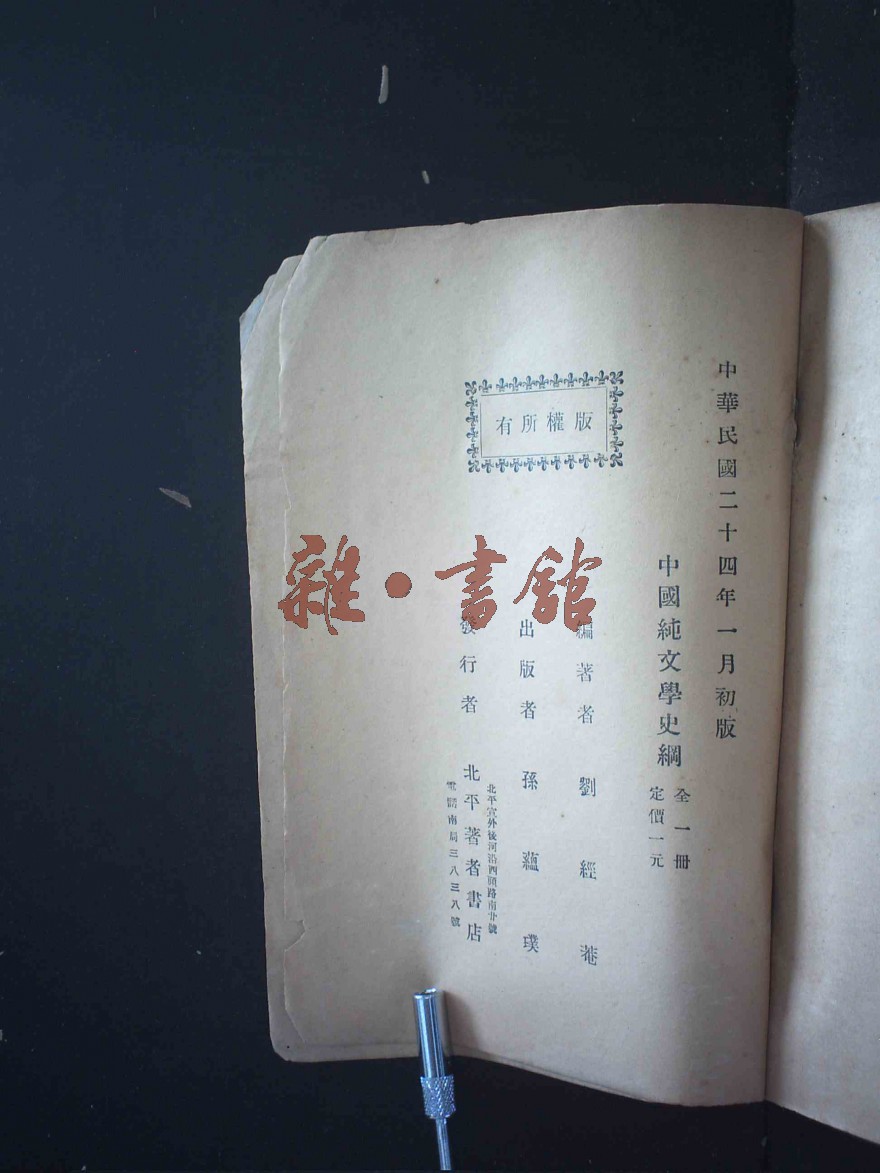 中華民國二十四年一月初版
中國純文學史綱
全一冊
定價一元
編著者 劉經菴
出版者 孫蘊璞
發行者 北平著者書店
北平宣外後河沿西頭路南廿號
電話南局三八三八號
版權所有
雜·書館